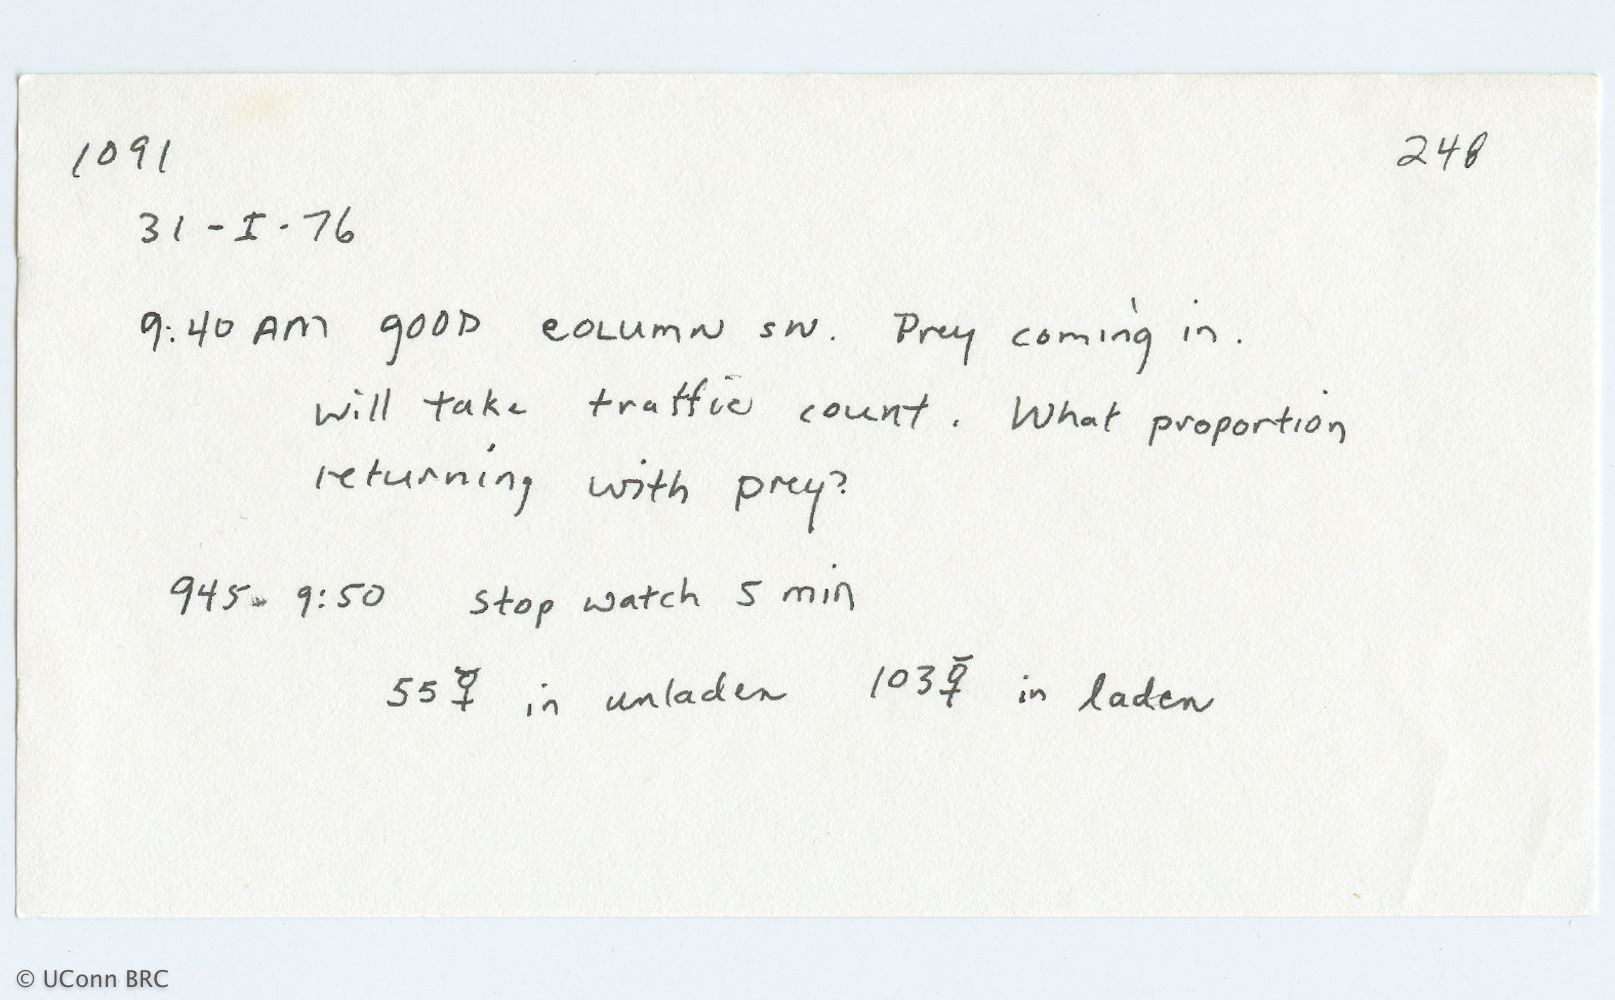 1091 248
31-I-76
9:40 AM good column SW. Prey coming in.
will take traffic count. What proportion
returning with prey?
945-9:50 stop watch 5 min
55☿ in unladen 103☿ in laden
© UConn BRC